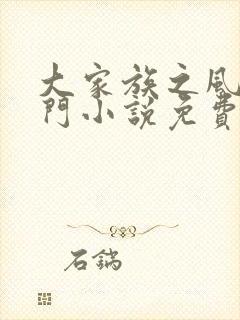 大家族之風
門小說免費
石鍋